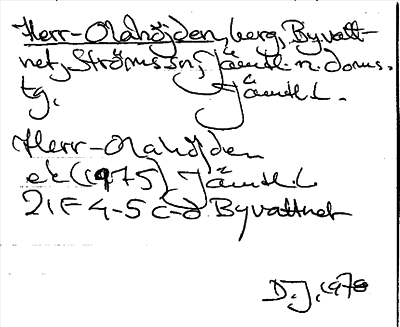 Herr-Olahöjden, berg, Byvatt-
net, Ströms sn, Jämtl. n. doms.
tg. Jämtl. L.
Herr-Olahöjden
ek (1975) Jämtl. L
21F 4-5 c-d Byvattnet
D.J. 1978